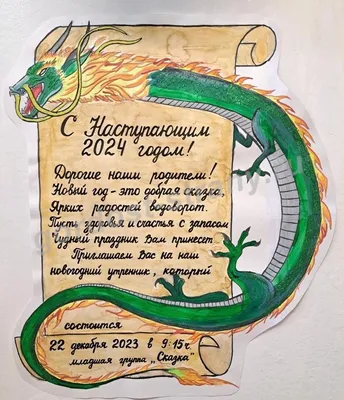 С Наступающим
2024 годом!
Дорогие наши родители!
Новый год - это добрая сказка,
Ярких радостей водоворот.
Пусть здоровья и счастья с запасом
Чудный праздник Вам принесет.
Приглашаем Вас на наш
новогодний утренник, который
состоится
22 декабря 2023 в 9:15ч.
младшая группа „Сказка"